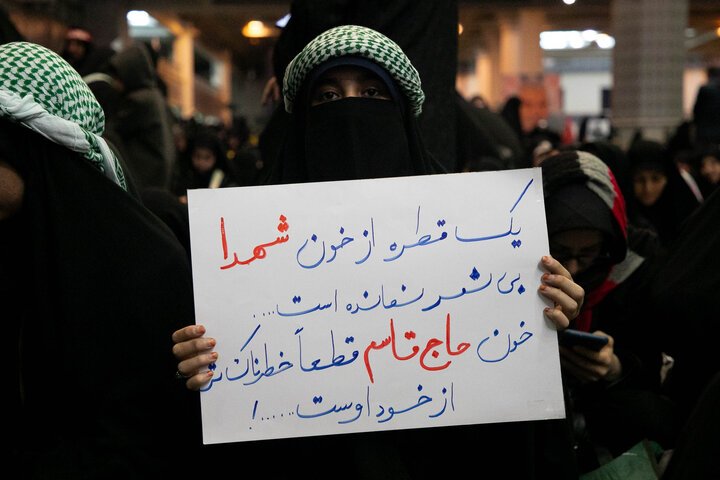 یک قطره از خون شهدا
بی ثمر نمانده است....
خون حاج قاسم قطعاً خطرناک تر
از خود اوست.....!